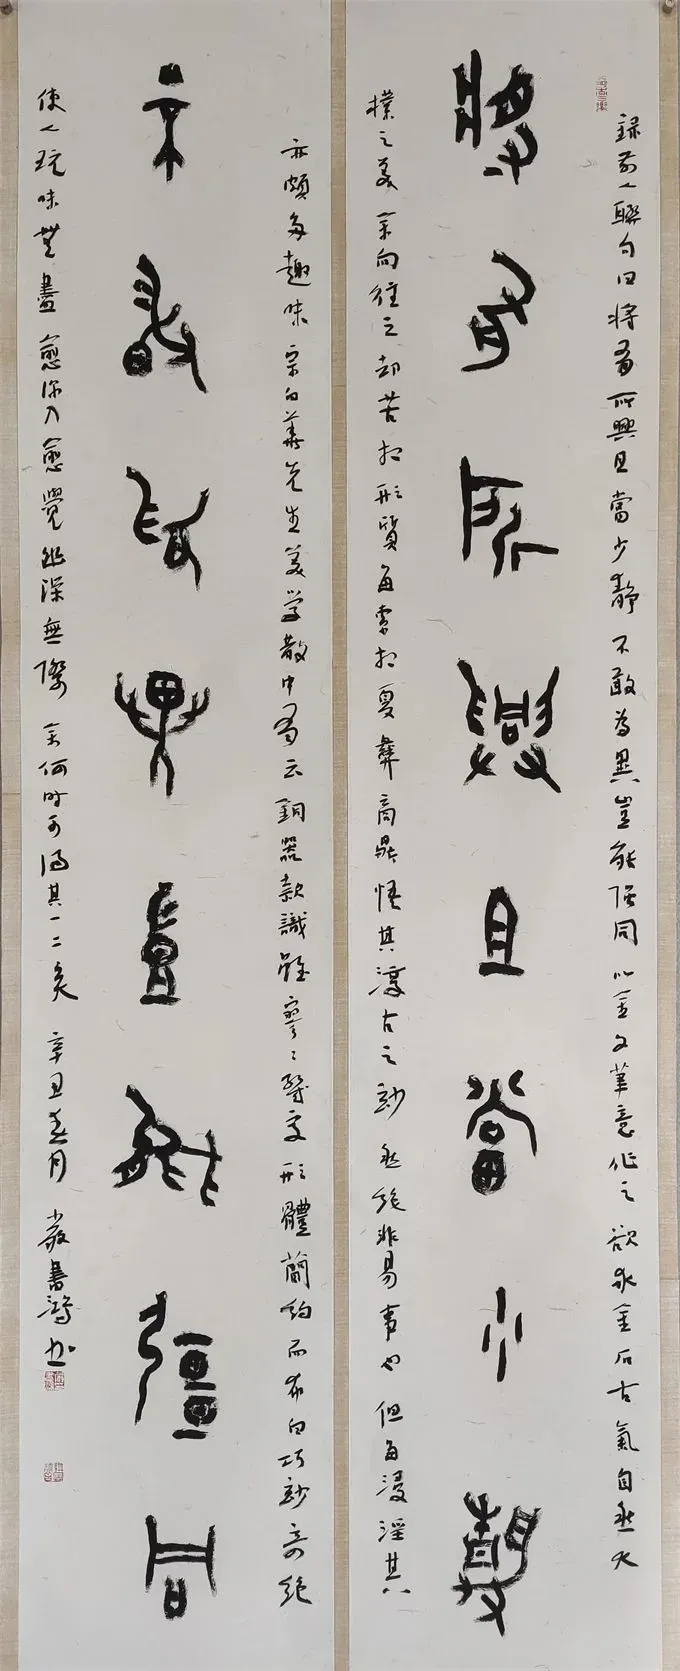 錄前人聯句曰將有所興且當少靜不敢為異豈能彊同以金文筆意作之欲求金石古氣自然大
將有所興且當少靜
樸之美余向往之却苦於形質每索於夏彝商鼎悟其淳古之妙然絕非易事也但每浸淫其
亦頗多趣味宗白華先生美學散中有云銅器款識雖寥寥幾字形體簡約而布白巧妙奇絕
不敢為異豈能彊同
使人玩味無盡愈深入愈覺幽深無際余何時可得其一二矣辛丑春月嚴書鴻書